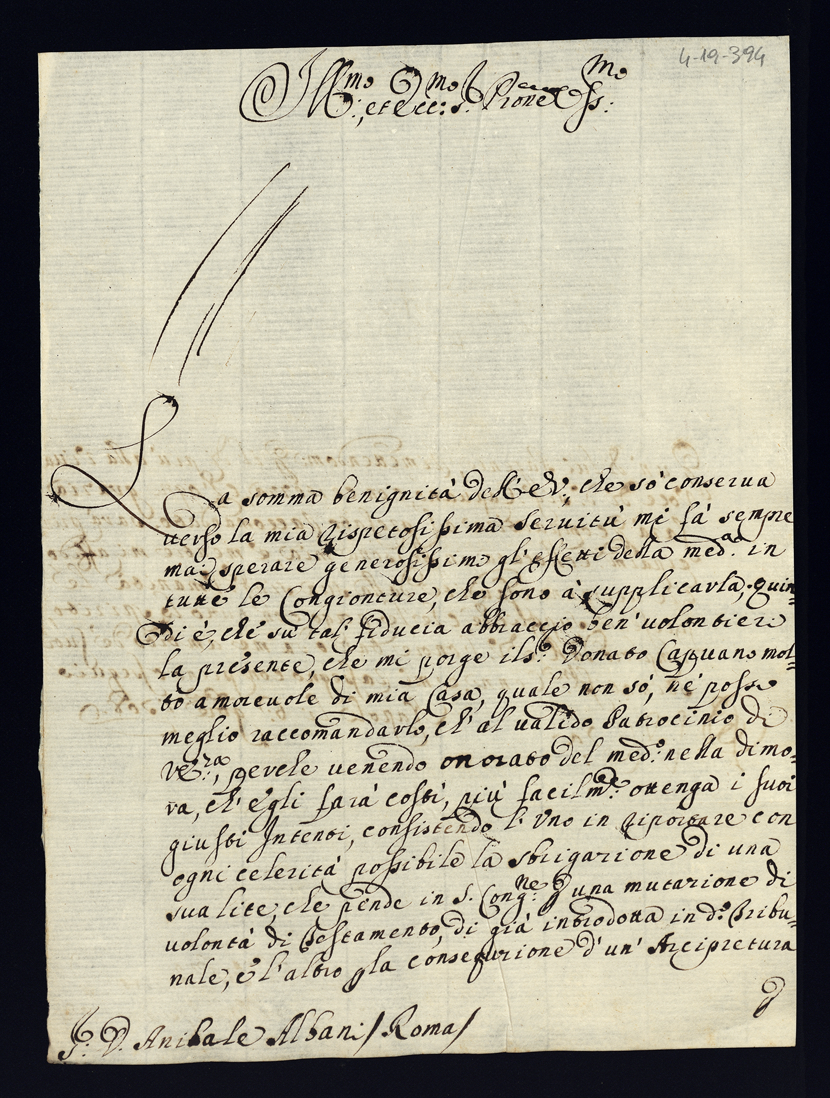 4-19-394
Ill:mo, et Ecc:mo S. Prone Oss:mo
La somma benignità dell'E.V., che sò conserva
verso la mia rispetosissima servitù mi fà sempre
mai sperare generosissimo gl'effetti della med:a in
tutte le Congionture, che sono à supplicarla. Quin=
di è, che sù tal' fiducia abbraccio ben' volontiere
la presente, che mi porge il S:r Donato Capuano mol=
to amorevole di mia Casa, quale non sò, nè posso
meglio raccomandarlo, ch' al valido Patrocinio di
V.E., perche venendo onorato del med:o nella dimo=
ra, ch' egli farà costì, più facilm:te ottenga i suoi
giusti Intenti, consistendo l'Uno in riportare con
ogni celerità possibile la sbrigazione di una
sua lite, che pende in S. Cong:ne p una mutazione di
volontà di Testamento, di già introdotta in d:o Tribu=
nale, e l'altro p la consequzione d'un' Arcipretura
S: D. Anibale Albani / Roma /